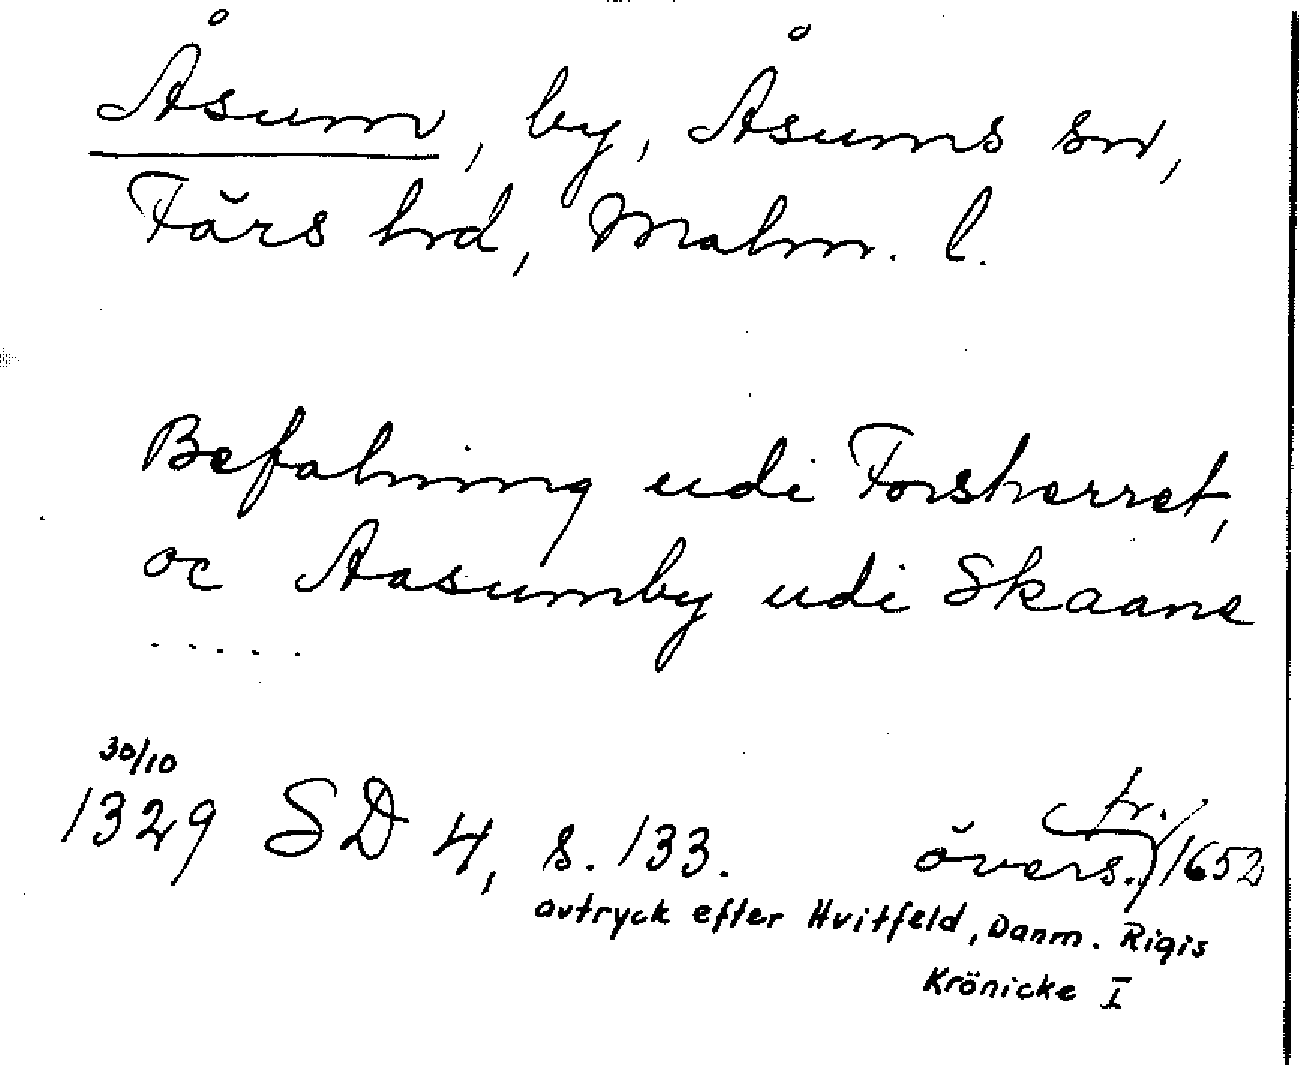 Åsum, by, Åsums sn,
Färs hrd, Malm. l.
Befalning udi Forsherret,
oc Aasumby udi Skaane
.....
30/10
1329 SD 4, s. 133. övers. tr. 1652
avtryck efter Hvitfeld, Danm. Rigis
Krönicke I